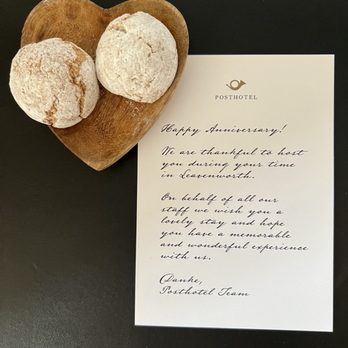 POSTHOTEL
Happy Anniversary!
We are thankful to host
you during your time
in Leavenworth.
On behalf of all our
staff we wish you a
lovely stay and hope
you have a memorable
and wonderful experience
with us.
Danke,
Posthotel Team